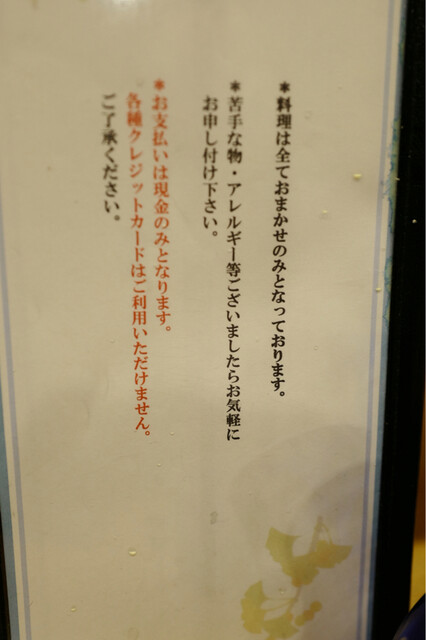 *料理は全ておまかせのみとなっております。
*苦手な物・アレルギー等ございましたらお気軽に
お申し付け下さい。
*お支払いは現金のみとなります。
各種クレジットカードはご利用いただけません。
ご了承ください。